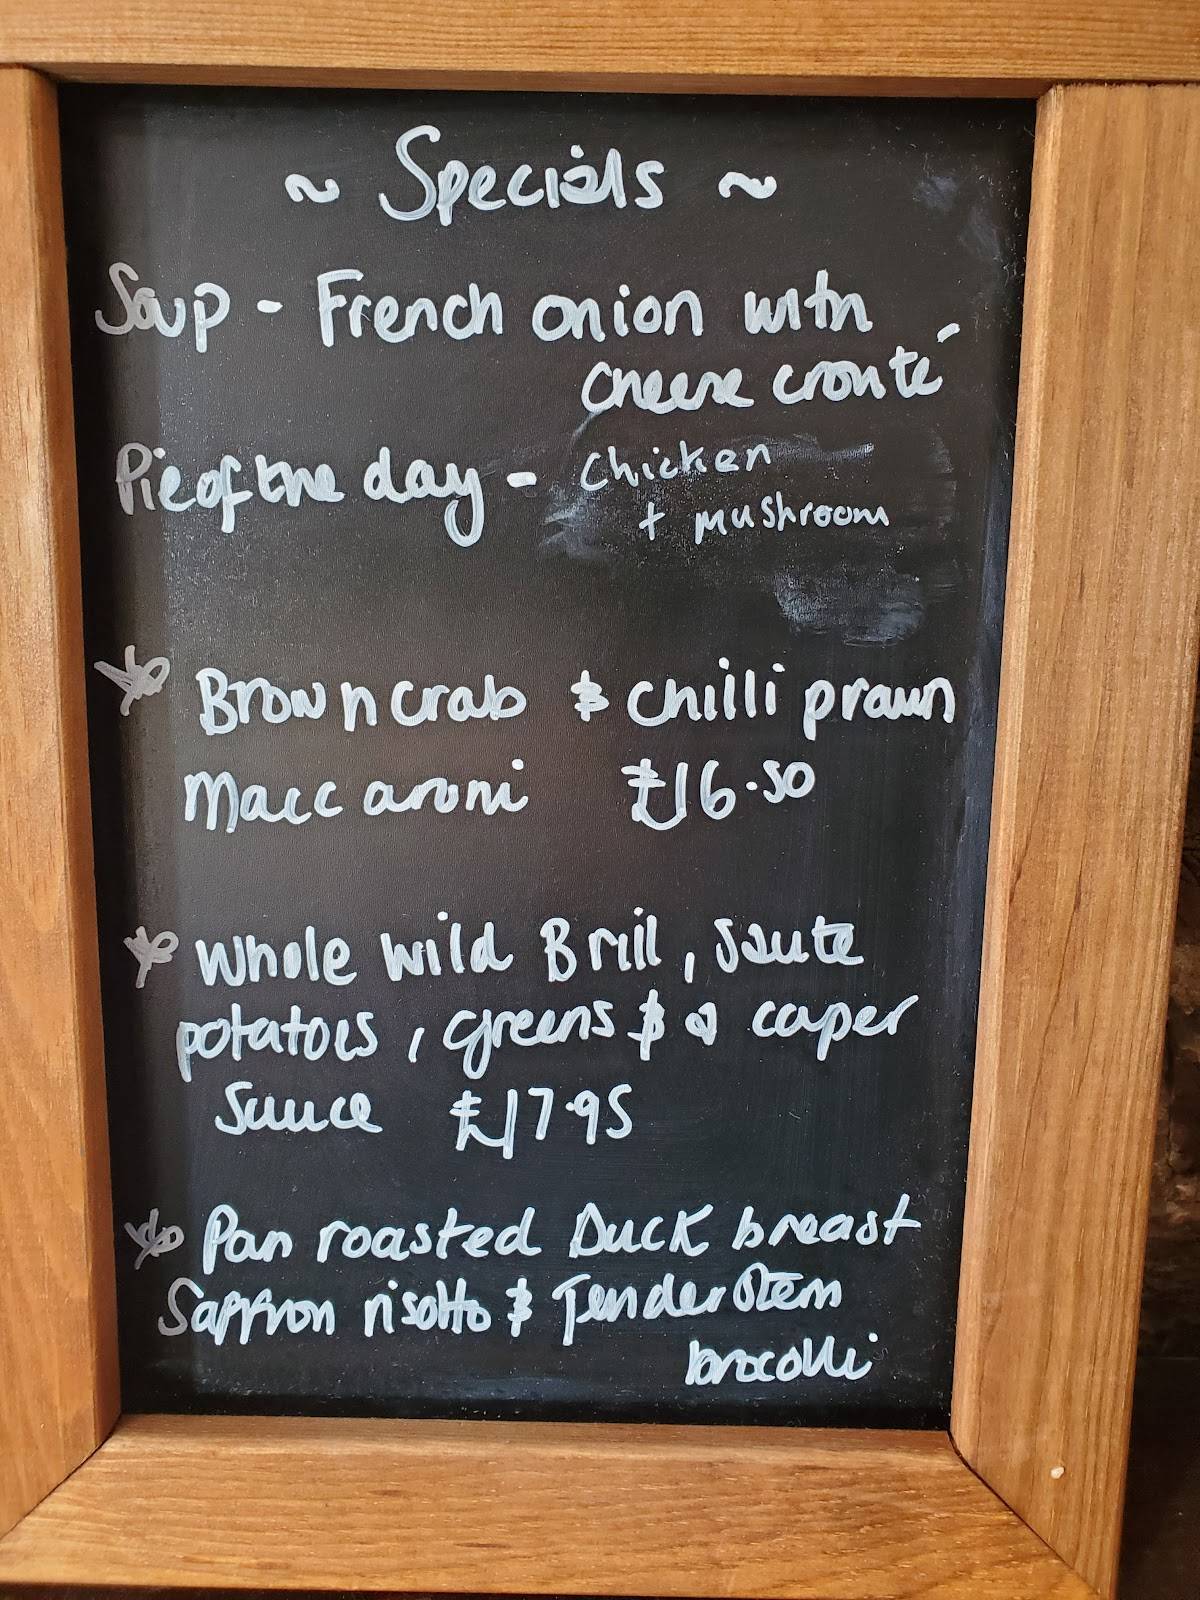 ~ Specials ~
Soup - French onion with
cheese crouté
Pie of the day - Chicken
+ mushroom
Brown crab & chilli prawn
Maccaroni £16.50
Whole wild Brill, saute
potatoes, greens & a caper
Sauce £17.95
Pan roasted Duck breast
Saffron risotto & Tenderstem
brocolli